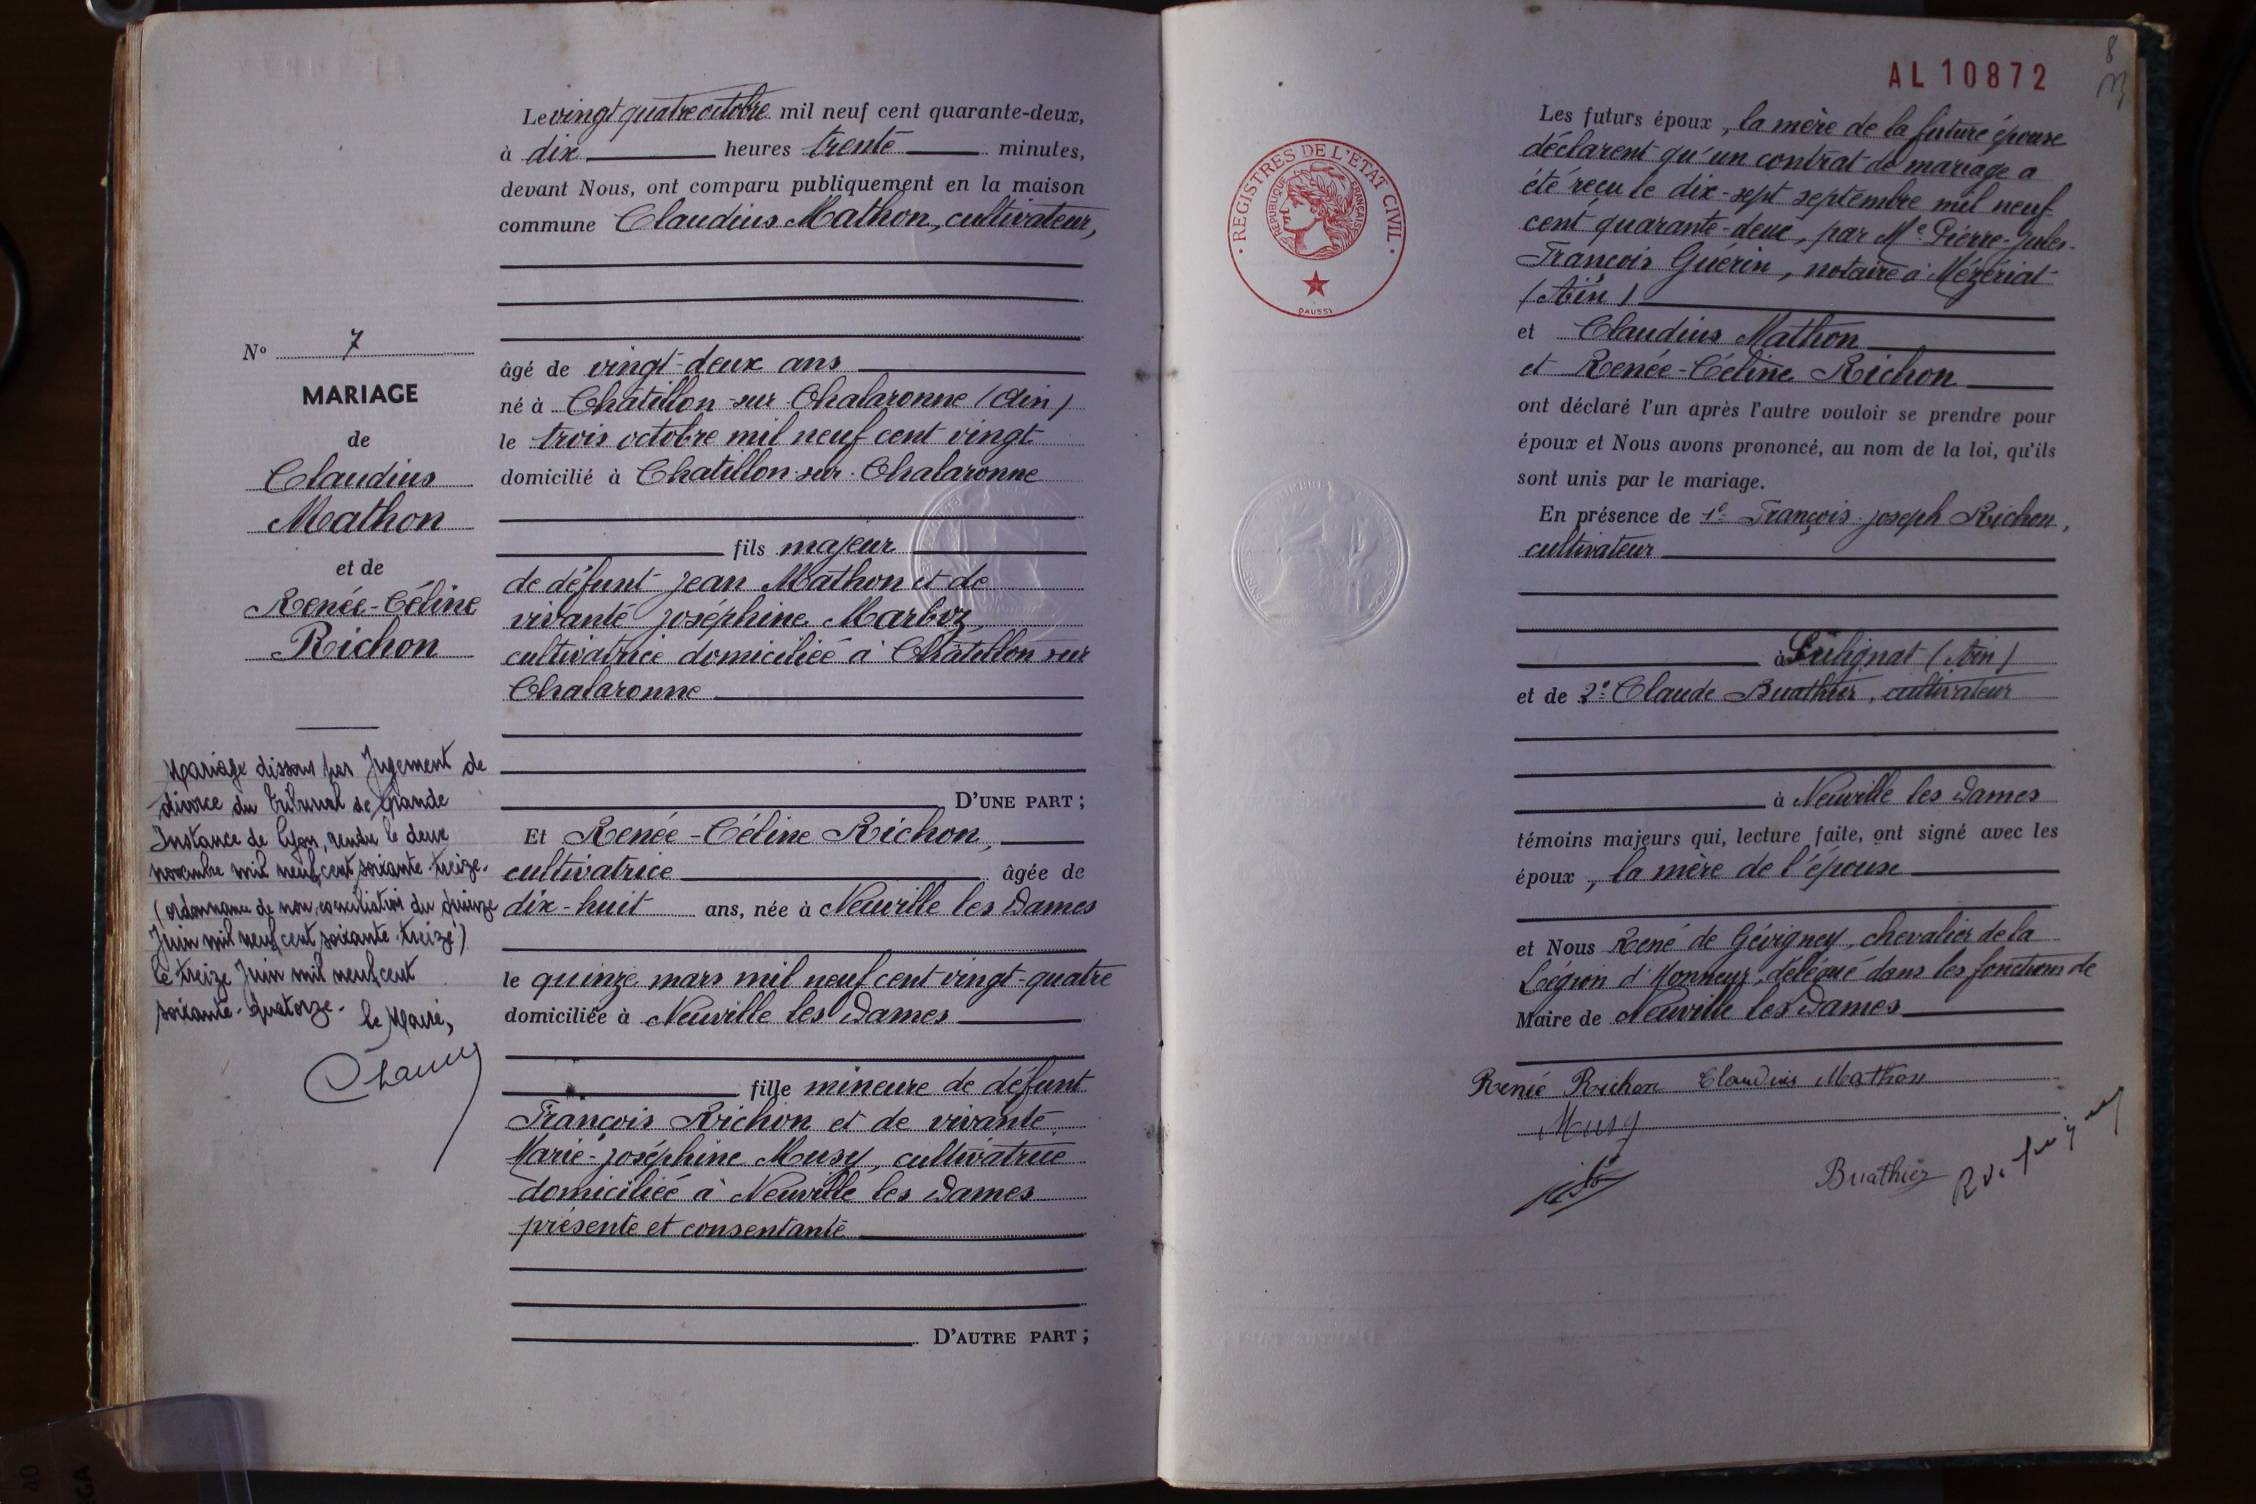 Le vingt quatre octobre mil neuf cent quarante-deux,
à dix heures trente minutes,
devant Nous, ont comparu publiquement en la maison
commune Claudius Mathon, cultivateur,
âgé de vingt-deux ans
né à Châtillon-sur-Chalaronne (Ain)
le trois octobre mil neuf cent vingt
domicilié à Chatillon-sur-Chalaronne
fils majeur
de défunt Jean Mathon et de
vivante Joséphine Marboz,
cultivatrice domiciliée à Châtillon sur
Chalaronne
D'UNE PART ;
Et Renée-Céline Richon,
cultivatrice âgée de
dix-huit ans, née à Neuville les Dames
le quinze mars mil neuf cent vingt-quatre
domiciliée à Neuville les Dames
fille mineure de défunt
François Richon et de vivante
Marie-Joséphine Musy, cultivatrice
domiciliée à Neuville les Dames
présente et consentante
D'AUTRE PART ;
N° 7
MARIAGE
de
Claudius
Mathon
et de
Renée-Céline
Richon
Mariage dissous par Jugement de
divorce du Tribunal de Grande
Instance de Lyon, rendu le deux
novembre mil neuf cent soixante-treize.
(ordonnance de non conciliation du quinze
Juin mil neuf cent soixante-treize)
le treize Juin mil neuf cent
soixante-quatorze.
le Maire,
8
AL 10872
REGISTRES DE L'ETAT CIVIL
REPUBLIQUE FRANÇAISE
DAUSSY
Les futurs époux, la mère de la future épouse
déclarent qu'un contrat de mariage a
été reçu le dix-sept septembre mil neuf
cent quarante-deux, par Me Pierre-Jules-
François Guérin, notaire à Mézériat
(Ain)
et Claudius Mathon
et Renée-Céline Richon
ont déclaré l'un après l'autre vouloir se prendre pour
époux et Nous avons prononcé, au nom de la loi, qu'ils
sont unis par le mariage.
En présence de 1° François-Joseph Richon,
cultivateur
à Sulignat (Ain)
et de 2° Claude Buathier, cultivateur
à Neuville les Dames
témoins majeurs qui, lecture faite, ont signé avec les
époux, la mère de l'épouse
et Nous René de Gévigney, chevalier de la
Légion d'Honneur, délégué dans les fonctions de
Maire de Neuville les Dames
Renée Richon Claudius Mathon
Musy
Buathier